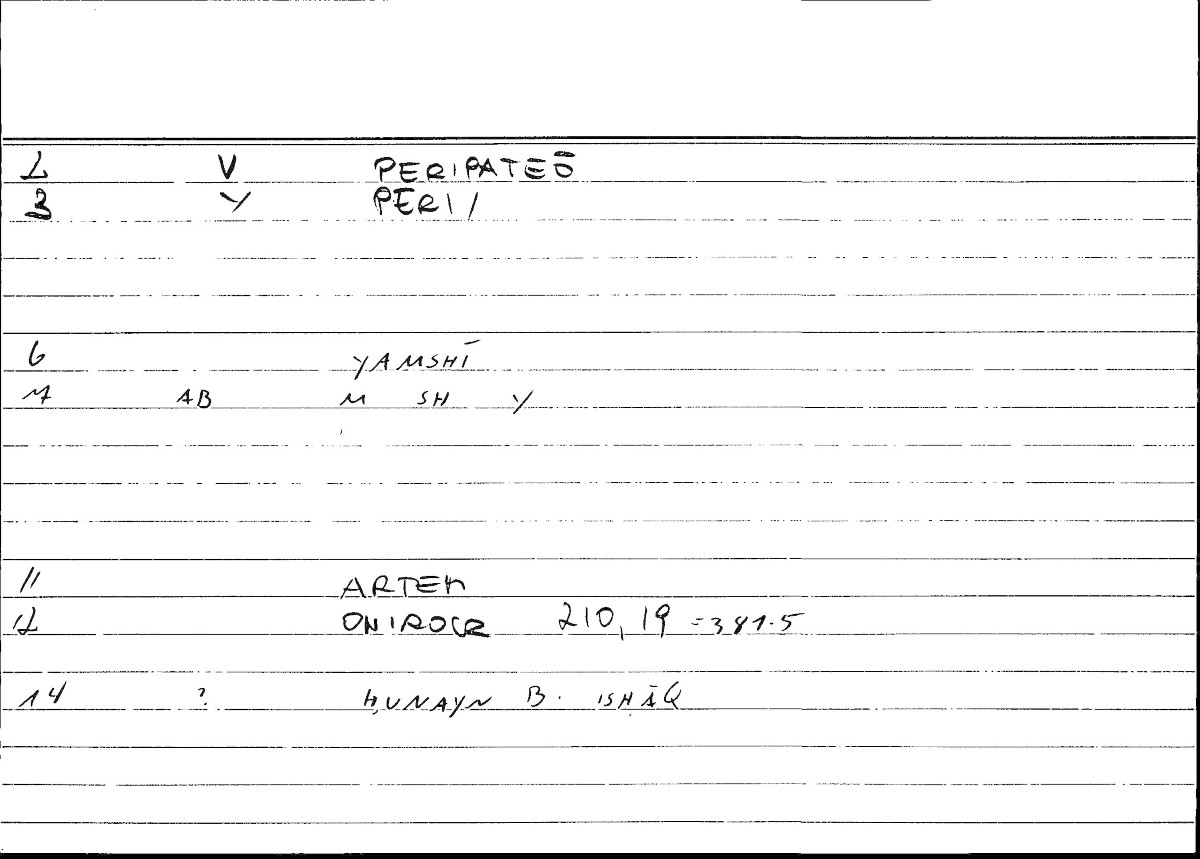 2 V PERIPATEŌ
3 Y PERI /
6 YAMSHĪ
7 AB M SH Y
11 ARTEM
12 ONIROCR 210, 19 = 381.5
14 ? ḤUNAYN B. ISḤĀQ